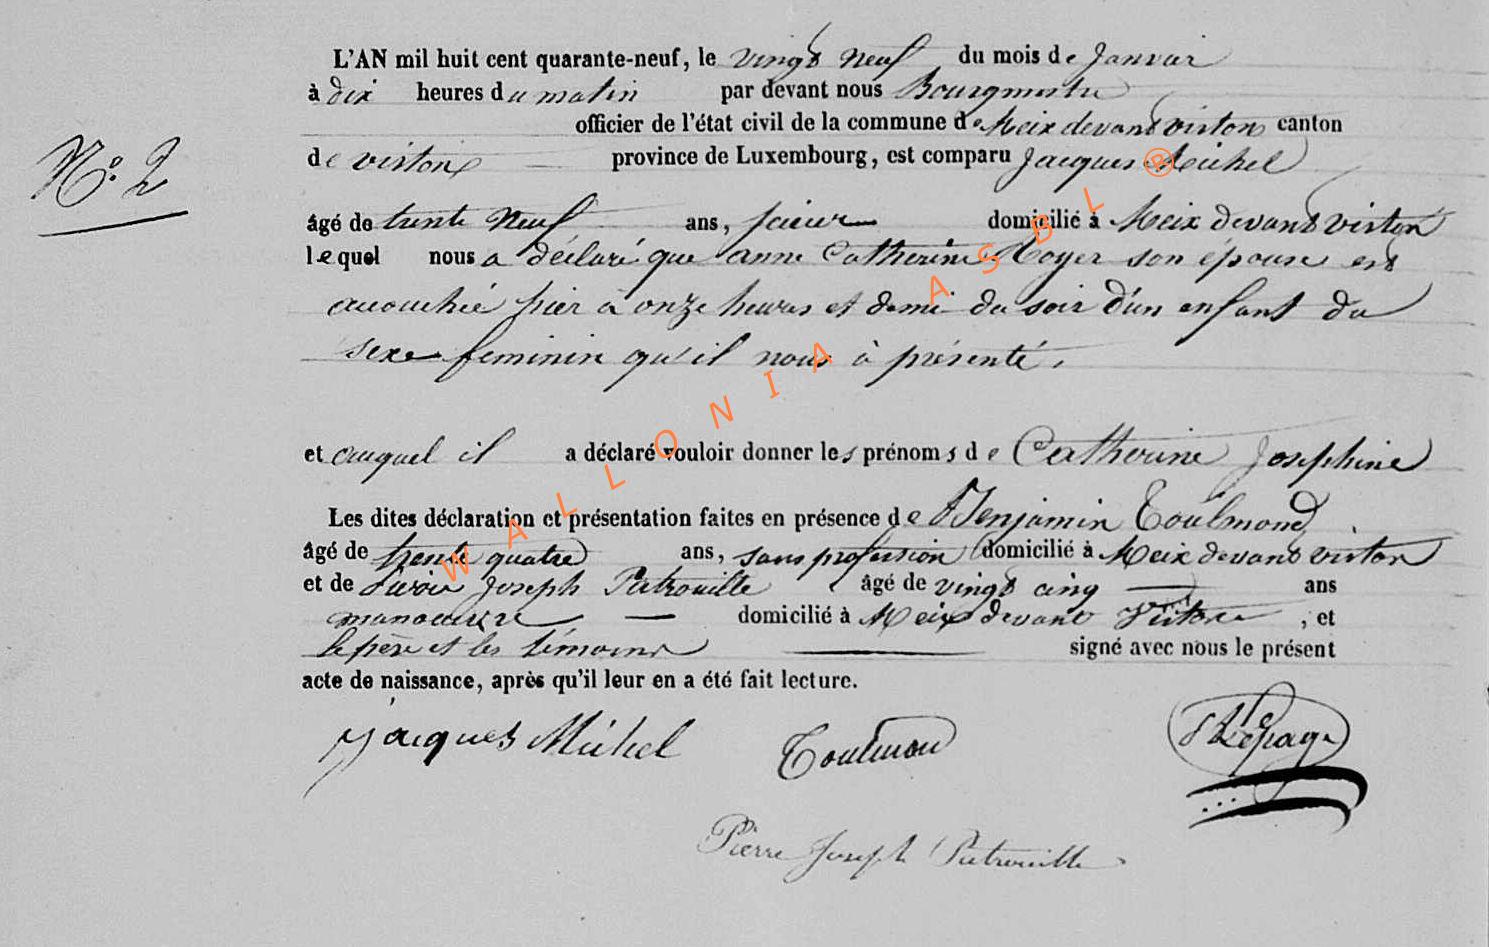 L'AN mil huit cent quarante-neuf, le vingt neuf du mois de Janvier
à dix heures du matin par devant nous Bourgmestre
officier de l'état civil de la commune de Meix devant virton canton
N.º 2
de virton province de Luxembourg, est comparu Jacques Michel
âgé de trente neuf ans, scieur domicilié à Meix devant virton
lequel nous a déclaré que anne Catherine Royer son épouse est
accouchée hier à onze heures et demi du soir d'un enfant du
sexe feminin qu'il nous à présenté,
et auquel il a déclaré vouloir donner les prénoms de Catherine Josephine
Les dites déclaration et présentation faites en présence de Benjamin Toulmond
âgé de trente quatre ans, sans profession domicilié à Meix devant virton
et de Joseph Patrouille âgé de vingt cinq ans
manoeuvre domicilié à Meix devant Virton, et
le père et les témoins signé avec nous le présent
acte de naissance, après qu'il leur en a été fait lecture.
Jacques Michel Toulmon Lepage
Pierre Joseph Patrouille
WALLONIA ASBL ®